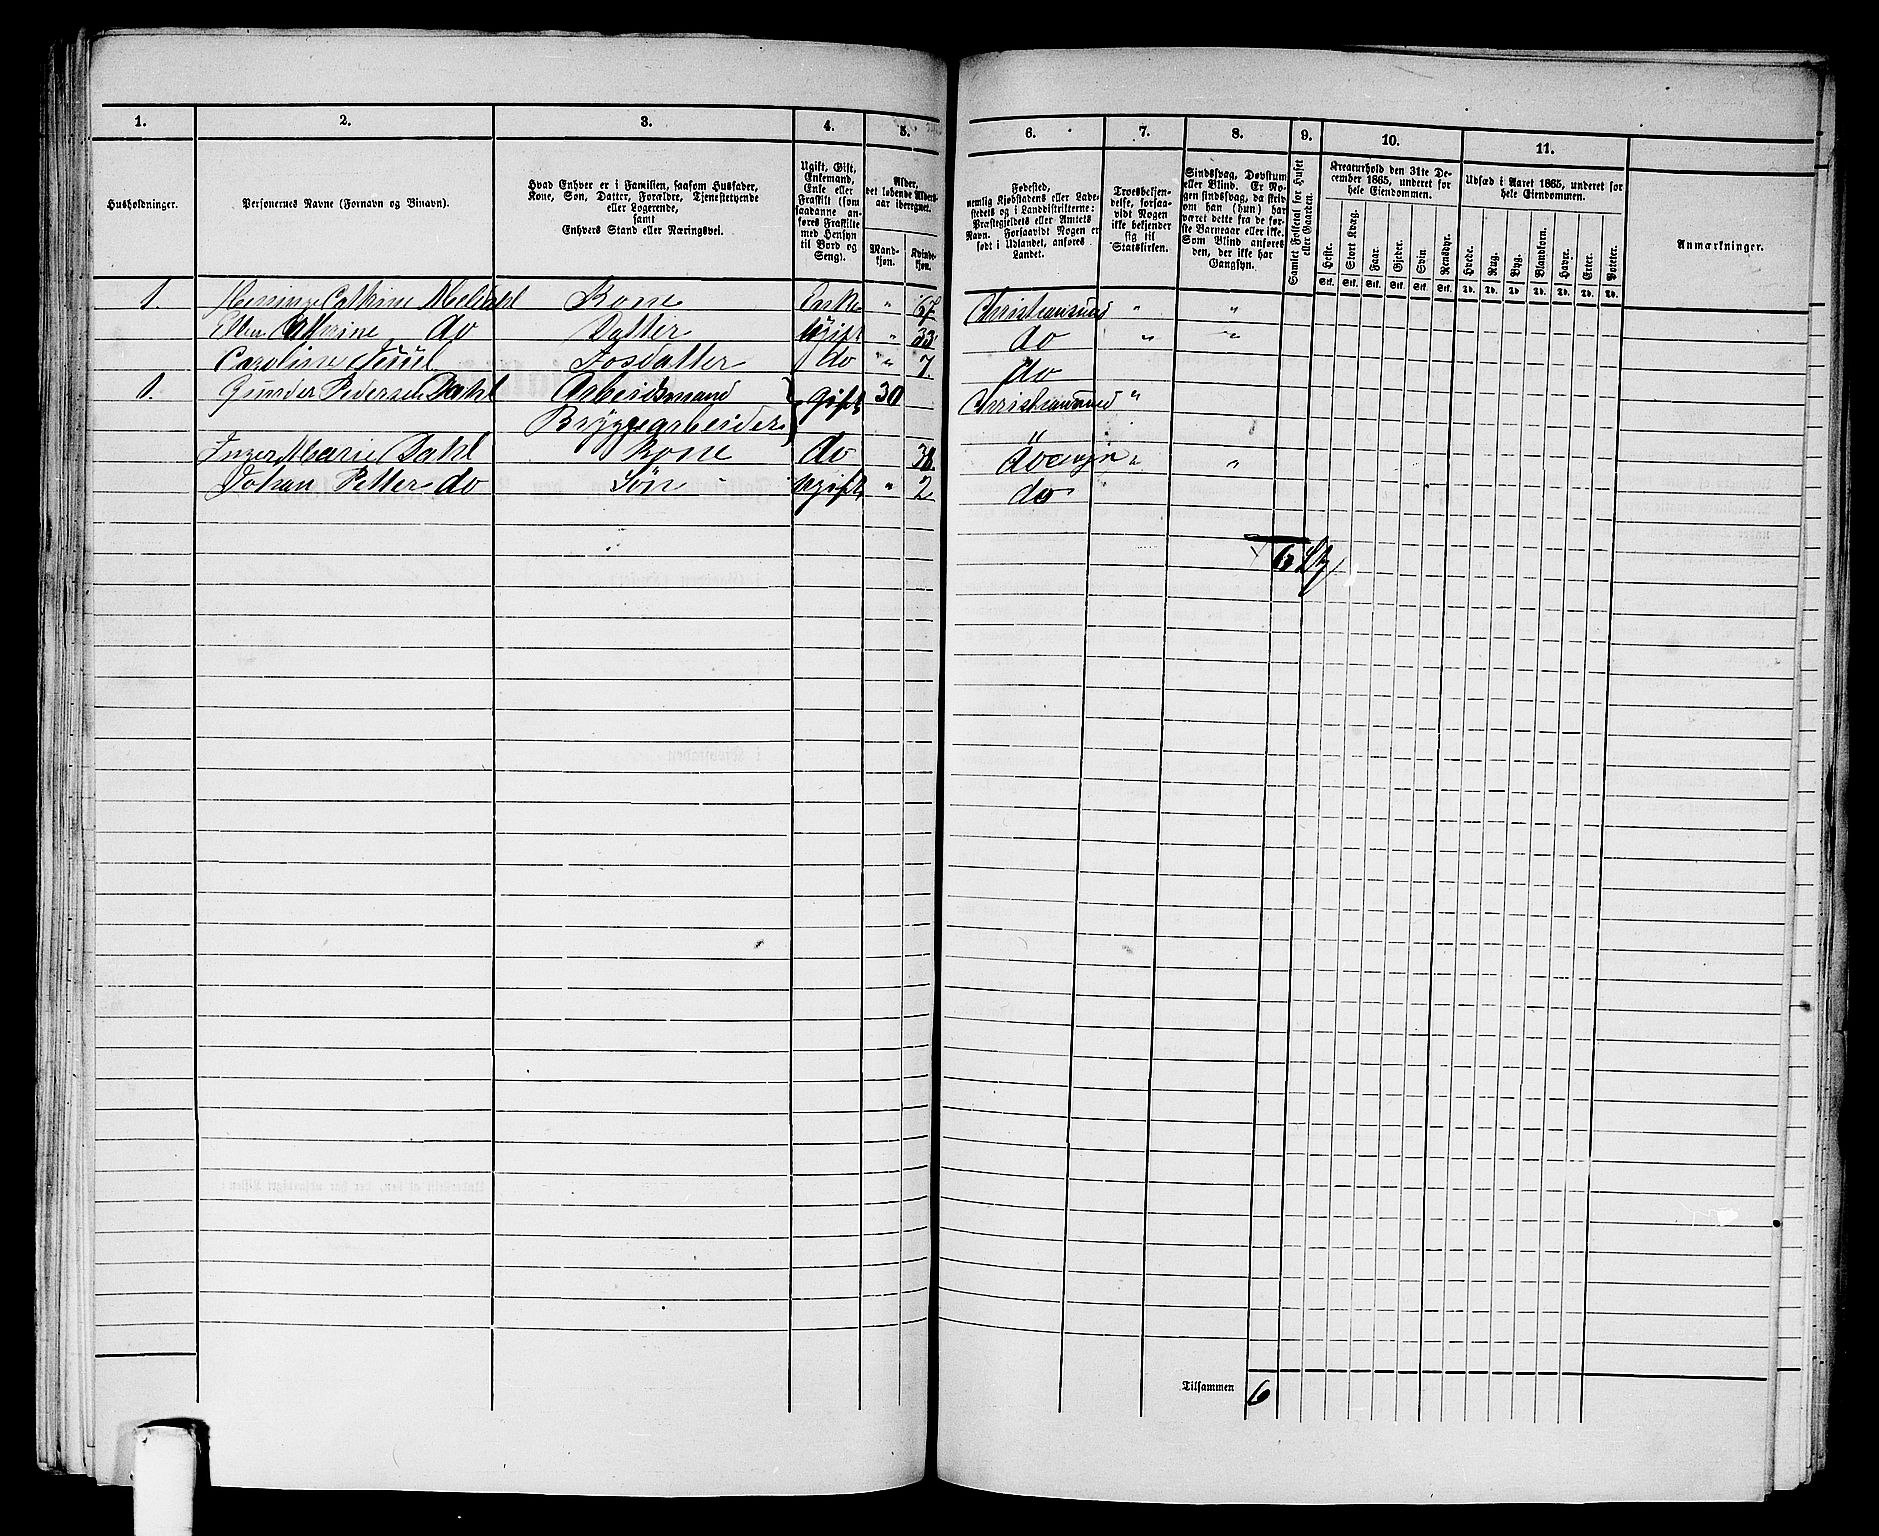 1. 2. 3. 4. 5. 6. 7. 8. 9. 10. 11.
Husholdninger.
Personernes Navne (Fornavn og Binavn).
Hvad Enhver er i Familien, saasom Husfader,
Kone, Søn, Datter, Forældre, Tjenestetyende
eller Logerende,
samt
Enhvers Stand eller Næringsvei.
Ugift, Gift,
Enkemand,
Enke eller
Fraskilt (som
saadanne an-
føres Fraskilte
med Hensyn
til Bord og
Seng).
Alder,
det løbende Alders-
aar iberegnet.
Mand-
kjøn.
Kvinde-
kjøn.
Fødested,
nemlig Kjøbstadens eller Lade-
stedets og i Landdistrikterne:
Præstegjeldets eller Amtets
Navn. Forsaavidt Nogen er
født i Udlandet, anføres
Landet.
Troesbekjen-
delse, forsaa-
vidt Nogen
ikke bekjender
sig til
Statskirken.
Sindssvag, Døvstum
eller Blind. Er No-
gen sindssvag, da skriv
om han (hun) har
været dette fra de før-
ste Barneaar eller ikke.
Som Blind anføres
den, der ikke har
Gangsyn.
Samlet Folketal for Huset
eller Gaarden.
Kreaturhold den 31te De-
cember 1865, underet for
hele Eiendommen.
Heste. Stort Kvæg. Faar. Gjeder. Svin Rensdyr.
Stk. Stk. Stk. Stk. Stk. Stk.
Udsæd i Aaret 1865, underet for
hele Eiendommen.
Hvede. Rug. Byg. Blandkorn. Havre. Erter. Poteter.
Td. Td. Td. Td. Td. Td. Td.
Anmærkninger.
1. Cathrine Meldahl Kone Enke " 67 Christiansund " "
Ellen Catterine do Datter Ugift " 33 do " "
Caroline Juul Fosdatter do " 7 do
1. Gunder Pedersen Dahl Arbeidsmand } gift 30 Christiansund "
Bryggearbeider
Inger Marie Dahl Kone do 38 do " "
Johan Petter do Søn ugift " 2 do
6
Tilsammen 6